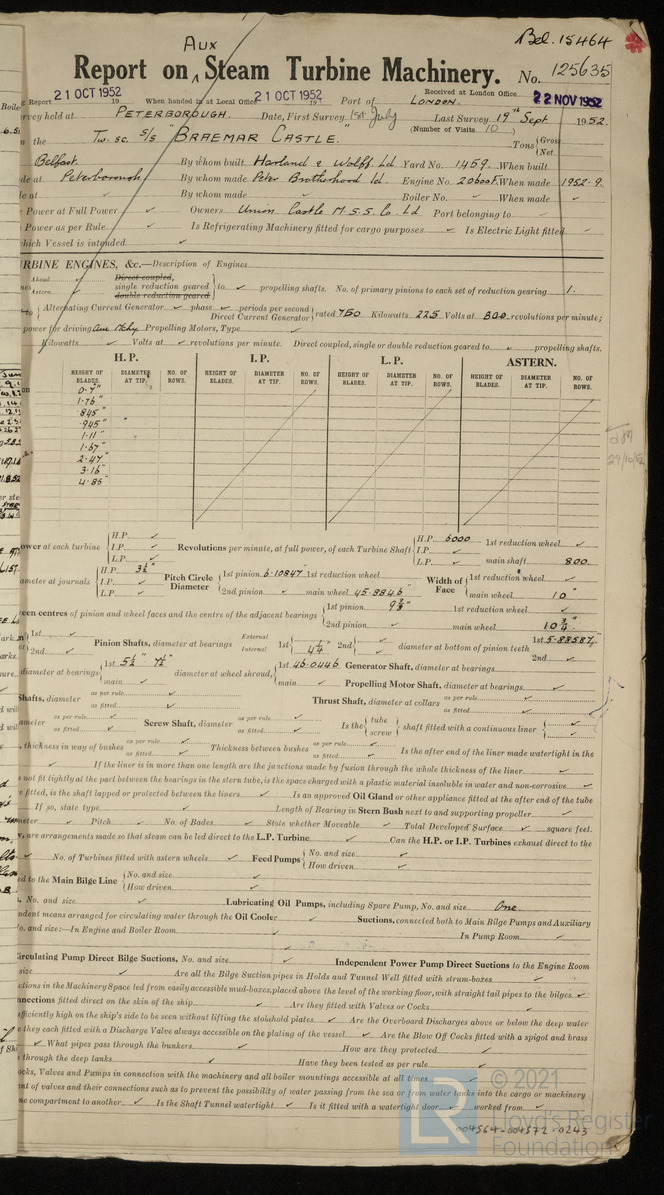 Bel. 15464
Aux
Report on Steam Turbine Machinery. No. 125635
Received at London Office
Report 21 OCT 1952 19 When handed in at Local Office 21 OCT 1952 Port of LONDON. 22 NOV 1952
rvey held at PETERBOROUGH. Date, First Survey 1st July Last Survey 19th Sept 1952.
(Number of Visits 10)
n the Tw. sc. S/S "BRAEMAR CASTLE." Tons Gross
Net
Belfast. By whom built Harland & Wolff Ld Yard No. 1459. When built
de at Peterborough By whom made Peter Brotherhood Ld. Engine No. 20600F. When made 1952.9.
le at By whom made Boiler No. When made
Power at Full Power Owners Union Castle M.S.S. Co. Ld Port belonging to
Power as per Rule Is Refrigerating Machinery fitted for cargo purposes Is Electric Light fitted
hich Vessel is intended
RBINE ENGINES, &c.—Description of Engines
Ahead Direct coupled,
single reduction geared to propelling shafts. No. of primary pinions to each set of reduction gearing 1.
Astern double reduction geared
to Alternating Current Generator phase periods per second
Direct Current Generator rated 750 Kilowatts 225 Volts at 800 revolutions per minute;
power for driving Aux Mchy Propelling Motors, Type
Kilowatts Volts at revolutions per minute. Direct coupled, single or double reduction geared to propelling shafts.
H.P. I.P. L.P. ASTERN.
HEIGHT OF BLADES. DIAMETER AT TIP. NO. OF ROWS. HEIGHT OF BLADES. DIAMETER AT TIP. NO. OF ROWS. HEIGHT OF BLADES. DIAMETER AT TIP. NO. OF ROWS. HEIGHT OF BLADES. DIAMETER AT TIP. NO. OF ROWS.
0.7"
1.76"
.845"
.945"
1.11"
1.67"
2.47"
3.16"
4.85"
ower at each turbine H.P. I.P. L.P. Revolutions per minute, at full power, of each Turbine Shaft H.P. 6000 I.P. L.P. 1st reduction wheel
main shaft 800.
ameter at journals H.P. 3½" I.P. L.P. Pitch Circle Diameter 1st pinion 6.10847 1st reduction wheel Width of Face 1st reduction wheel
2nd pinion main wheel 45.8846" main wheel 10"
een centres of pinion and wheel faces and the centre of the adjacent bearings 1st pinion 1st reduction wheel
2nd pinion main wheel 10¾"
1st 2nd Pinion Shafts, diameter at bearings External Internal 1st 2nd diameter at bottom of pinion teeth 1st 5.88587"
2nd
diameter at bearings 1st main diameter at wheel shroud, 1st 46.0446 Generator Shaft, diameter at bearings
main Propelling Motor Shaft, diameter at bearings
Shafts, diameter as per rule as fitted Thrust Shaft, diameter at collars as per rule as fitted
ameter as per rule as fitted Screw Shaft, diameter as per rule as fitted Is the tube screw shaft fitted with a continuous liner
thickness in way of bushes as per rule as fitted Thickness between bushes as per rule as fitted Is the after end of the liner made watertight in the
If the liner is in more than one length are the junctions made by fusion through the whole thickness of the liner
s not fit tightly at the part between the bearings in the stern tube, is the space charged with a plastic material insoluble in water and non-corrosive
e fitted, is the shaft lapped or protected between the liners Is an approved Oil Gland or other appliance fitted at the after end of the tube
If so, state type Length of Bearing in Stern Bush next to and supporting propeller
meter Pitch No. of Blades State whether Moveable Total Developed Surface square feet.
e, are arrangements made so that steam can be led direct to the L.P. Turbine Can the H.P. or I.P. Turbines exhaust direct to the
No. of Turbines fitted with astern wheels Feed Pumps No. and size
How driven
ed to the Main Bilge Line No. and size
How driven
, No. and size Lubricating Oil Pumps, including Spare Pump, No. and size One
ndent means arranged for circulating water through the Oil Cooler Suctions, connected both to Main Bilge Pumps and Auxiliary
o. and size:—In Engine and Boiler Room
In Pump Room
irculating Pump Direct Bilge Suctions, No. and size Independent Power Pump Direct Suctions to the Engine Room
size Are all the Bilge Suction pipes in Holds and Tunnel Well fitted with strum-boxes
ctions in the Machinery Space led from easily accessible mud-boxes, placed above the level of the working floor, with straight tail pipes to the bilges
nnections fitted direct on the skin of the ship Are they fitted with Valves or Cocks
fficiently high on the ship's side to be seen without lifting the stokehold plates Are the Overboard Discharges above or below the deep water
they each fitted with a Discharge Valve always accessible on the plating of the vessel Are the Blow Off Cocks fitted with a spigot and brass
What pipes pass through the bunkers How are they protected
through the deep tanks Have they been tested as per rule
ocks, Valves and Pumps in connection with the machinery and all boiler mountings accessible at all times
nt of valves and their connections such as to prevent the possibility of water passing from the sea or from water tanks into the cargo or machinery
ne compartment to another Is the Shaft Tunnel watertight Is it fitted with a watertight door worked from
© 2021
LR Lloyd's Register
Foundation
004564-004572-0243